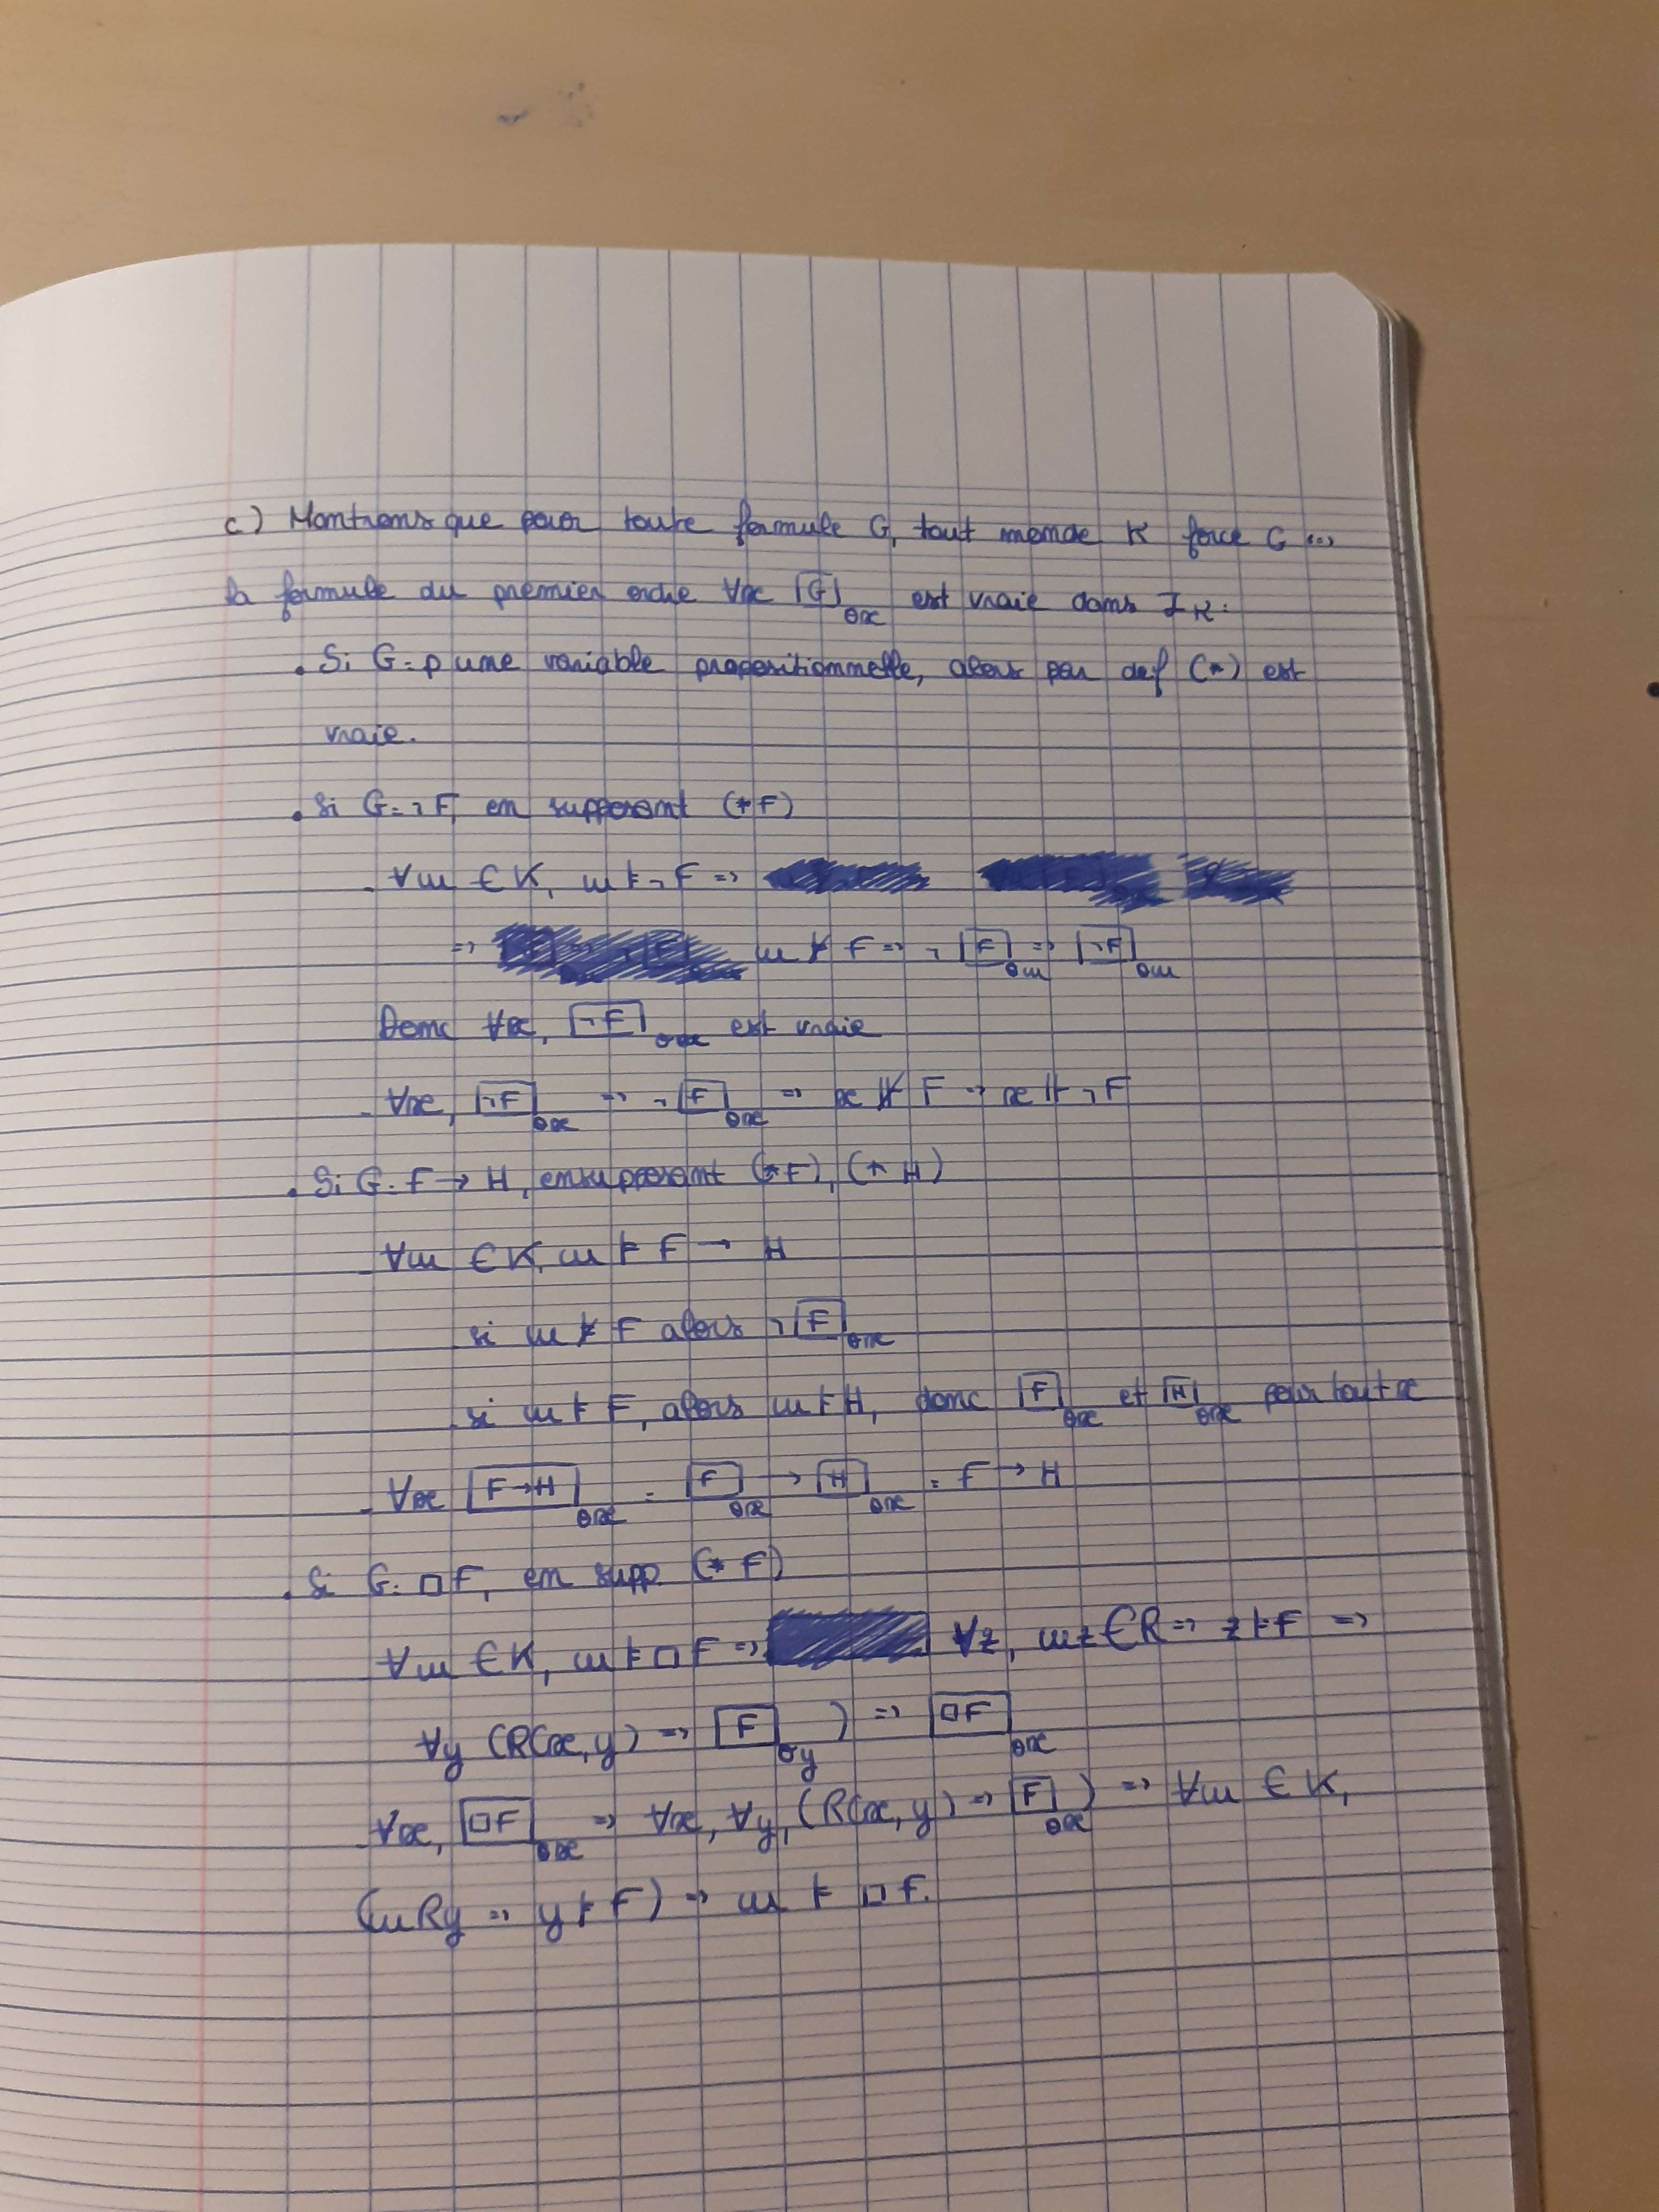 c) Montrons que pour toute formule G, tout monde K force G <=>
la formule du premier ordre ∀x ⌈G⌉@x est vraie dans I_K.
. Si G = p une variable propositionnelle, alors par def (*) est
vraie.
. Si G = ¬F, en supposant (*F)
- ∀w ∈ K, w ⊧ ¬F =>
=> w ⊭ F => ¬⌈F⌉@w => ⌈¬F⌉@w
Donc ∀x, ⌈¬F⌉@x est vraie
- ∀x, ⌈¬F⌉@x => ¬⌈F⌉@x => x ⊮ F → x ⊩ ¬F
. Si G = F → H, en supposant (*F), (*H)
- ∀w ∈ K, w ⊧ F → H
. si w ⊭ F alors ¬⌈F⌉@x
. si w ⊧ F, alors w ⊧ H, donc ⌈F⌉@x et ⌈H⌉@x pour tout x
- ∀x ⌈F→H⌉@x = ⌈F⌉@x → ⌈H⌉@x = F → H
. Si G = □F, en supp. (*F)
∀w ∈ K, w ⊧ □F => ∀z, wz ∈ R => z ⊧ F =>
∀y (R(x,y) => ⌈F⌉@y) => ⌈□F⌉@x
- ∀x, ⌈□F⌉@x => ∀x, ∀y, (R(x,y) => ⌈F⌉@x) => ∀w ∈ K,
(wRy => y ⊧ F) => w ⊧ □F.